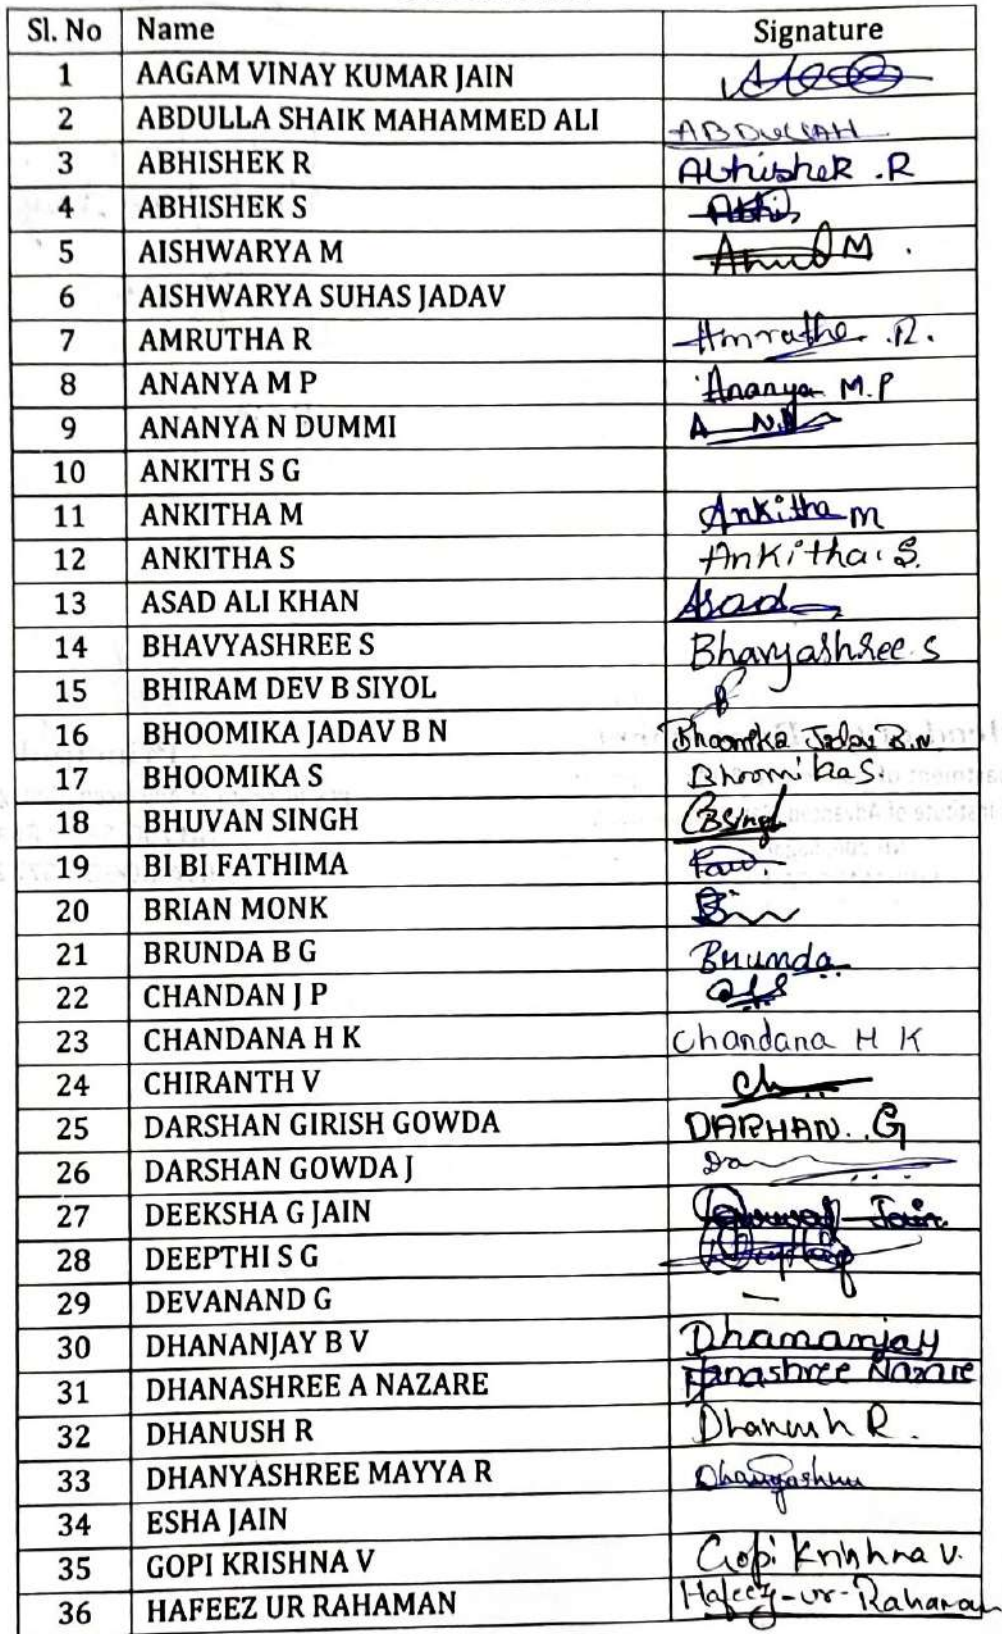 Sl. No Name Signature
1 AAGAM VINAY KUMAR JAIN
2 ABDULLA SHAIK MAHAMMED ALI ABDULLAH
3 ABHISHEK R Abhishek .R
4 ABHISHEK S Abhi
5 AISHWARYA M
6 AISHWARYA SUHAS JADAV
7 AMRUTHA R Amrutha R.
8 ANANYA M P Ananya M.P
9 ANANYA N DUMMI A N.D
10 ANKITH S G
11 ANKITHA M Ankitha M
12 ANKITHA S Ankitha.S.
13 ASAD ALI KHAN Asad
14 BHAVYASHREE S Bhavyashree.S
15 BHIRAM DEV B SIYOL B
16 BHOOMIKA JADAV B N Bhoomika Jadav B.N.
17 BHOOMIKA S Bhoomika S.
18 BHUVAN SINGH BSingh
19 BI BI FATHIMA
20 BRIAN MONK
21 BRUNDA B G Brunda
22 CHANDAN J P
23 CHANDANA H K Chandana H K
24 CHIRANTH V Ch
25 DARSHAN GIRISH GOWDA DARHAN. G
26 DARSHAN GOWDA J Da
27 DEEKSHA G JAIN Jain
28 DEEPTHI S G
29 DEVANAND G –
30 DHANANJAY B V Dhananjay
31 DHANASHREE A NAZARE Nazare
32 DHANUSH R Dhanush R.
33 DHANYASHREE MAYYA R Dhanyashree
34 ESHA JAIN
35 GOPI KRISHNA V Gopi Krishna V.
36 HAFEEZ UR RAHAMAN Hafeez-ur-Rahaman